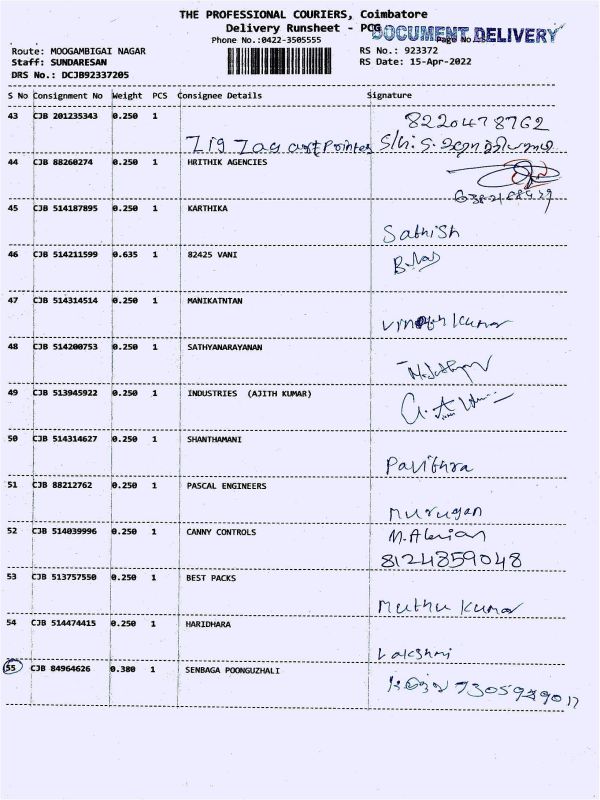 THE PROFESSIONAL COURIERS, Coimbatore
Delivery Runsheet - PCG
DOCUMENT DELIVERY
Phone No.:0422-3505555
Route: MOOGAMBIGAI NAGAR
RS No.: 923372
Staff: SUNDARESAN
RS Date: 15-Apr-2022
DRS No.: DCJB92337205
S No Consignment No Weight PCS Consignee Details Signature
43 CJB 201235343 0.250 1 8220478762
Zig Zag
44 CJB 88260274 0.250 1 HRITHIK AGENCIES
45 CJB 514187895 0.250 1 KARTHIKA
Sathish
46 CJB 514211599 0.635 1 82425 VANI
47 CJB 514314514 0.250 1 MANIKATNTAN
Kumar
48 CJB 514200753 0.250 1 SATHYANARAYANAN
49 CJB 513945922 0.250 1 INDUSTRIES (AJITH KUMAR)
50 CJB 514314627 0.250 1 SHANTHAMANI
Pavithra
51 CJB 88212762 0.250 1 PASCAL ENGINEERS
Murugan
52 CJB 514039996 0.250 1 CANNY CONTROLS
8124859048
53 CJB 513757550 0.250 1 BEST PACKS
Muthu Kumar
54 CJB 514474415 0.250 1 HARIDHARA
Lakshmi
55 CJB 84964626 0.380 1 SENBAGA POONGUZHALI